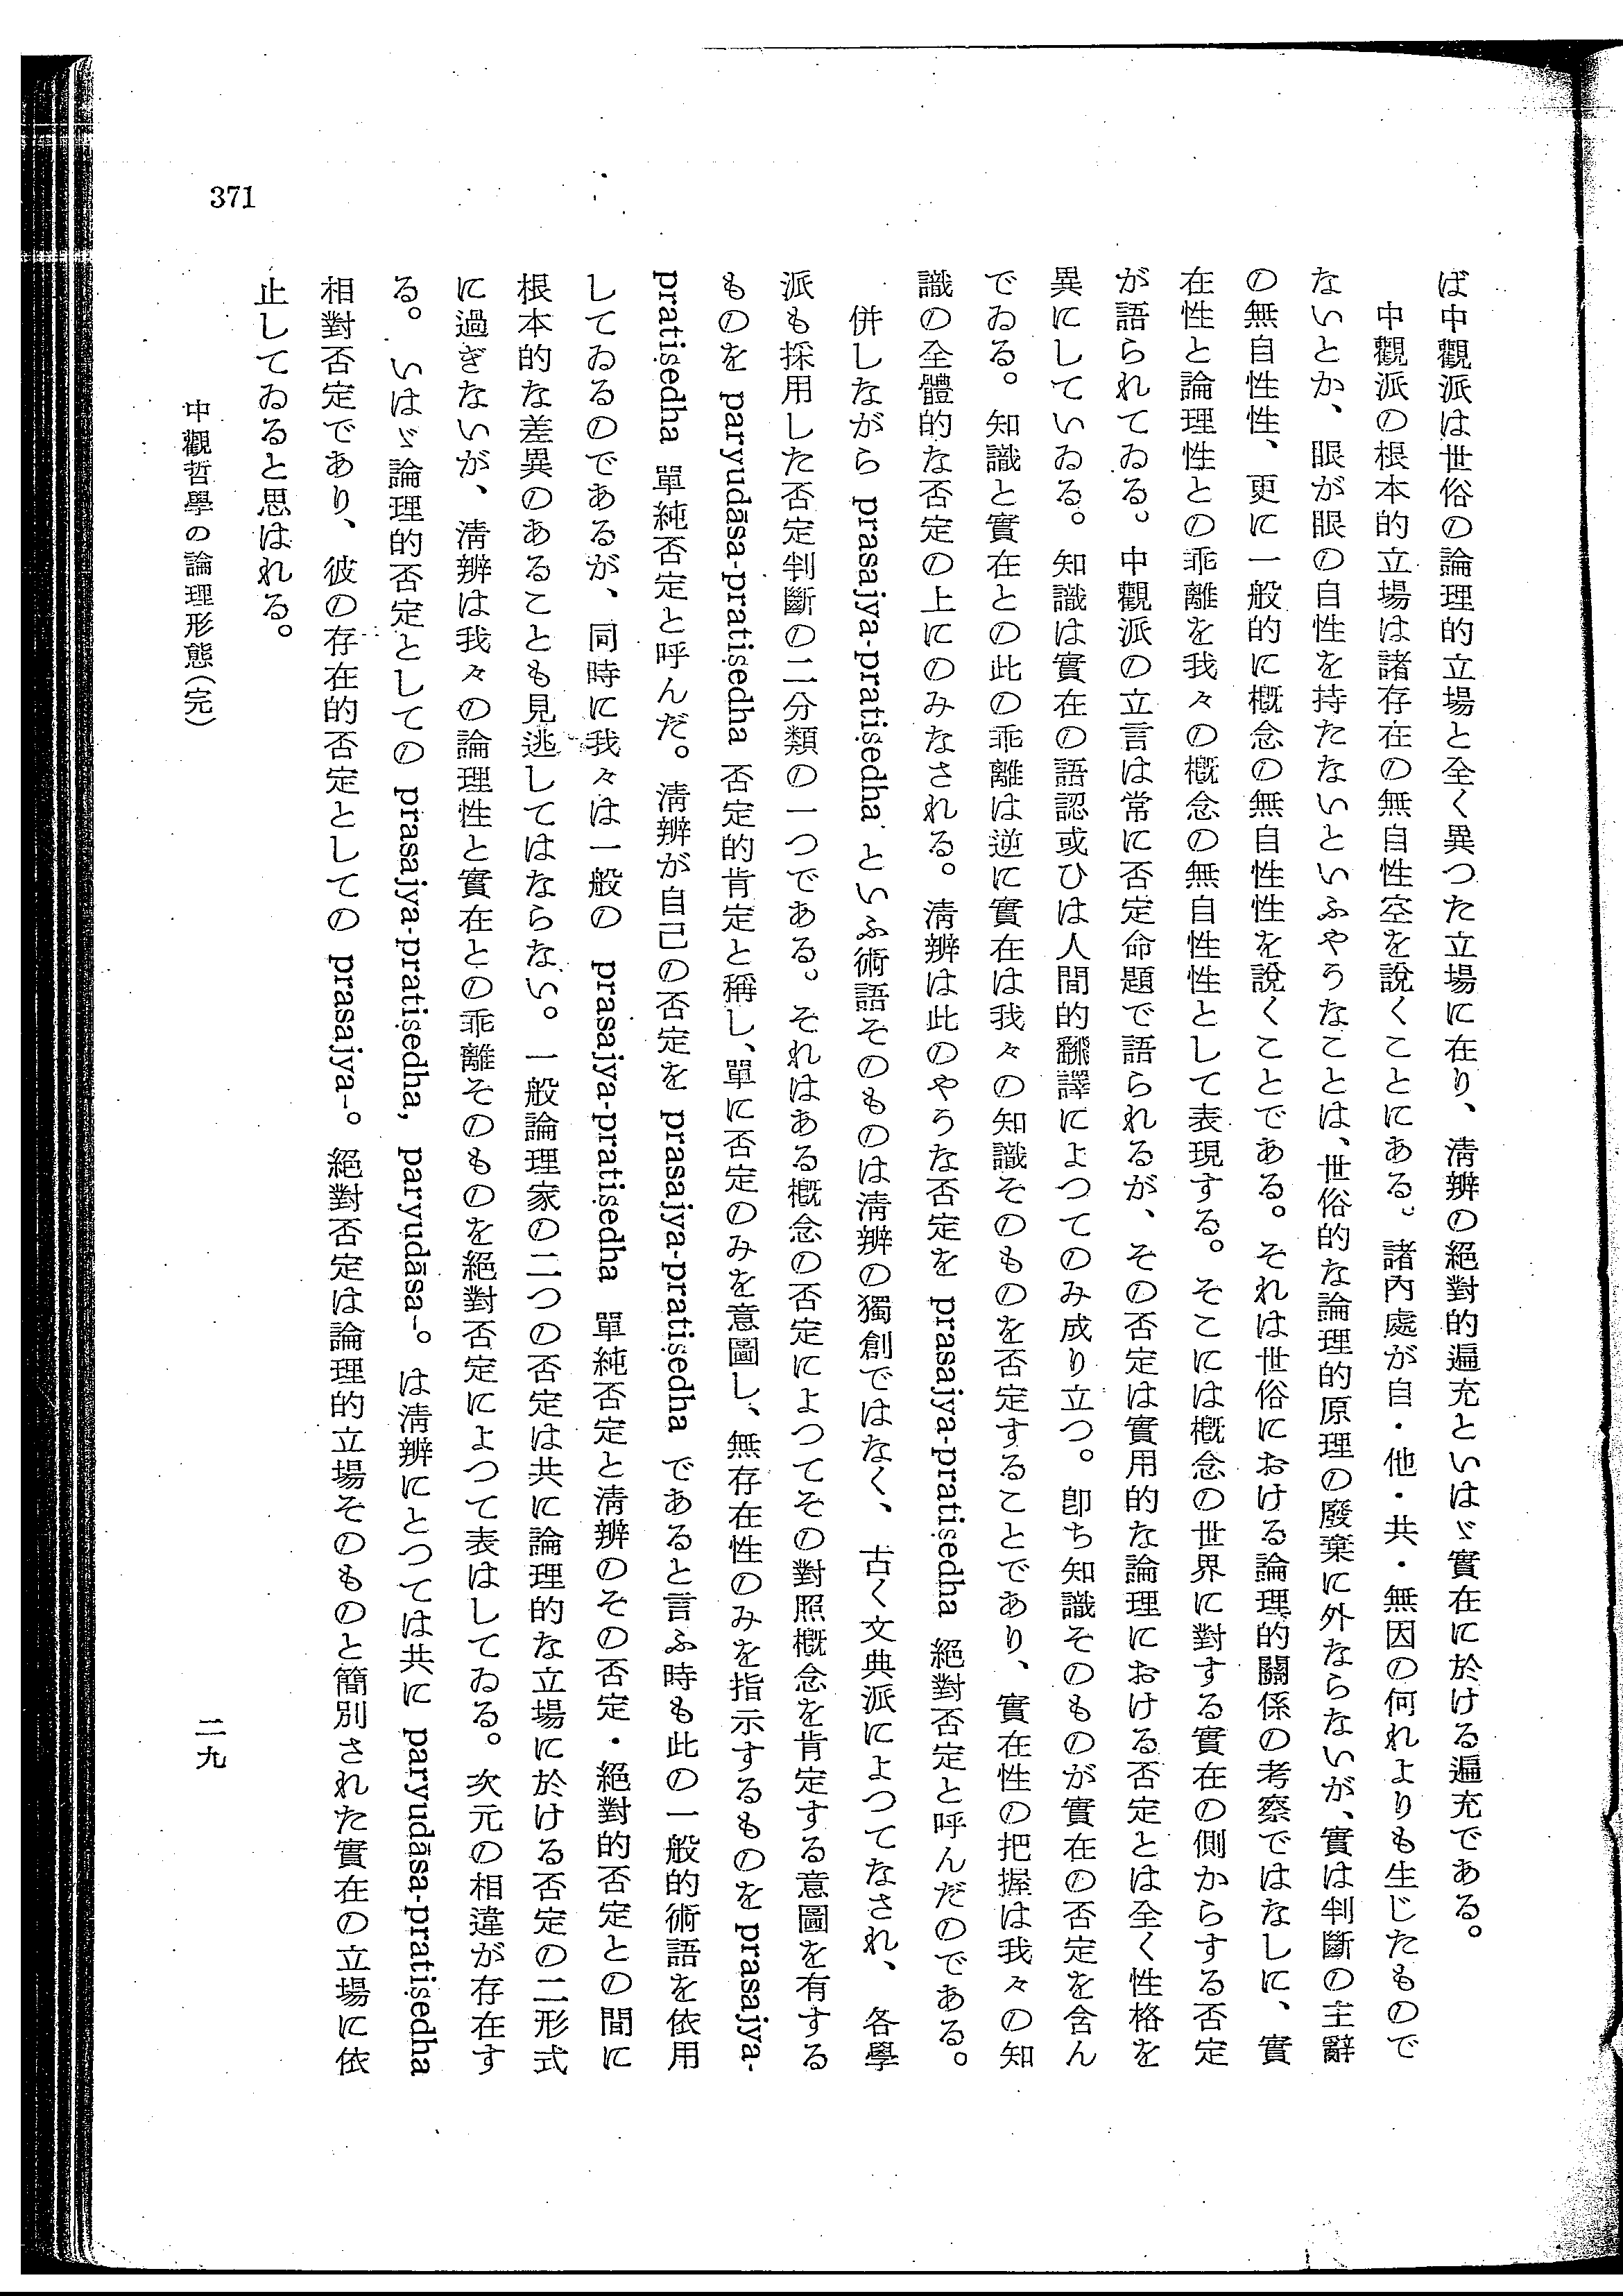 ば中觀派は世俗の論理的立場と全く異つた立場に在り、淸辨の絕對的遍充といはゞ實在に於ける遍充である。
中觀派の根本的立場は諸存在の無自性空を說くことにある。諸內處が自・他・共・無因の何れよりも生じたもので
ないとか、眼が眼の自性を持たないといふやうなことは、世俗的な論理的原理の廢棄に外ならないが、實は判斷の主辭
の無自性性、更に一般的に槪念の無自性性を說くことである。それは世俗における論理的關係の考察ではなしに、實
在性と論理性との乖離を我々の槪念の無自性性として表現する。そこには槪念の世界に對する實在の側からする否定
が語られてゐる。中觀派の立言は常に否定命題で語られるが、その否定は實用的な論理における否定とは全く性格を
異にしていゐる。知識は實在の語認或ひは人間的飜譯によつてのみ成り立つ。卽ち知識そのものが實在の否定を含ん
でゐる。知識と實在との此の乖離は逆に實在は我々の知識そのものを否定することであり、實在性の把握は我々の知
識の全體的な否定の上にのみなされる。淸辨は此のやうな否定を prasajya-pratiṣedha 絕對否定と呼んだのである。
併しながら prasajya-pratiṣedha といふ術語そのものは淸辨の獨創ではなく、古く文典派によつてなされ、各學
派も採用した否定判斷の二分類の一つである。それはある槪念の否定によつてその對照槪念を肯定する意圖を有する
ものを paryudāsa-pratiṣedha 否定的肯定と稱し、單に否定のみを意圖し、無存在性のみを指示するものを prasajya-
pratiṣedha 單純否定と呼んだ。淸辨が自己の否定を prasajya-pratiṣedha であると言ふ時も此の一般的術語を依用
してゐるのであるが、同時に我々は一般の prasajya-pratiṣedha 單純否定と淸辨のその否定・絕對的否定との間に
根本的な差異のあることも見逃してはならない。一般論理家の二つの否定は共に論理的な立場に於ける否定の二形式
に過ぎないが、淸辨は我々の論理性と實在との乖離そのものを絕對否定によつて表はしてゐる。次元の相違が存在す
る。いはゞ論理的否定としての prasajya-pratiṣedha, paryudāsa-。は淸辨にとつては共に paryudāsa-pratiṣedha
相對否定であり、彼の存在的否定としての prasajya-。絕對否定は論理的立場そのものと簡別された實在の立場に依
止してゐると思はれる。
中觀哲學の論理形態(完)
二九
371